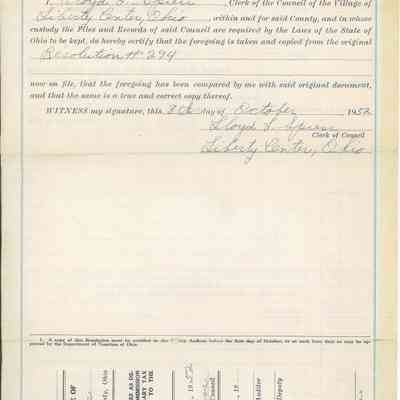 I, Lloyd L. Spiess, Clerk of the Council of the Village of
Liberty Center, Ohio, within and for said County, and in whose
custody the Files and Records of said Council are required by the Laws of the State of
Ohio to be kept, do hereby certify that the foregoing is taken and copied from the original
Resolution # 294
now on file, that the foregoing has been compared by me with said original document,
and that the same is a true and correct copy thereof.
WITNESS my signature, this 8th day of October 1952
Lloyd L. Spiess
Clerk of Council
Liberty Center, Ohio
1. A copy of this Resolution must be certified to the County Auditor before the first day of October, or at such later date as may be ap-
proved by the Department of Taxation of Ohio.
OF
nty, Ohio
MISSION
ARY TAX
TO THE
1952
Council
19
Auditor
Deputy